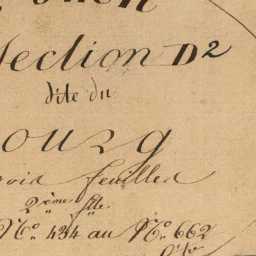 Section D2
dite du
ourg
feuilles
2ème flle.
No. 434 au No. 662